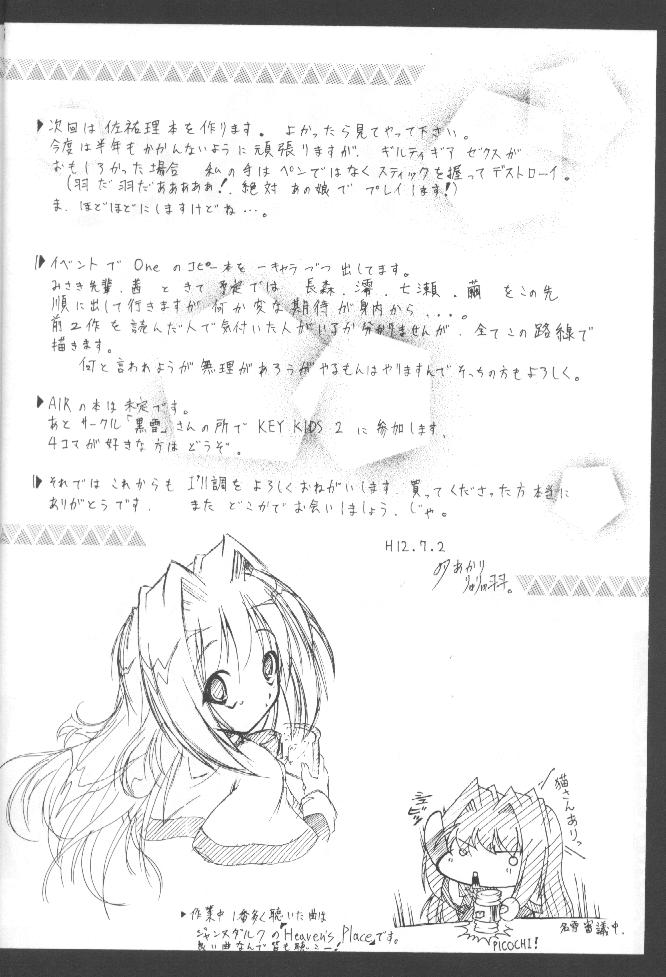 次回は佐祐理本を作ります。よかったら見てやって下さい。
今度は半年もかかんないように頑張りますが、ギルティギア ゼクスが
おもしろかった場合 私の手はペンではなくスティックを握ってデストローイ。
(羽だ羽だあああああ!、絶対 あの娘で プレイします!)
ま、ほどほどにしますけどね…。
イベントで Oneのコピー本を一キャラづつ出してます。
みさき先輩、茜 ときて 予定では、長森、澪、七瀬、繭 をこの先
順に出して行きますが 何か変な期待が身内から...。
前2作を読んだ人で気付いた人がいるか分かりませんが、全てこの路線で
描きます。
何と言われようが無理があろうがやるもんはやりますんでそっちの方もよろしく。
AIRの本は未定です。
あと サークル「黒雪」さんの所で KEY KIDS 2 に参加します。
4コマが好きな方はどうぞ。
それでは これからも I'll調を よろしくおねがいします。買ってくださった方本当に
ありがとうです。 また どこかで お会いしましょう、じゃ。
H12.7.2
猫さんありっ
PICOCHI!
名雪審議中。
作業中 1番多く聴いた曲は
ジャンヌダルクの「Heaven's Place」です。
良い曲なんで皆も聴こー!